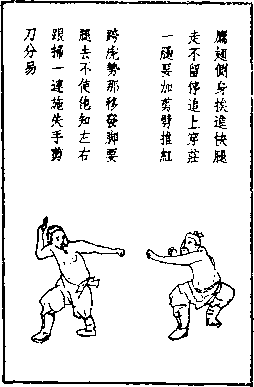 鴈翅側身挨進快腿
走不留停追上穿莊
一腿要加剪劈推紅
跨虎勢那移發脚要
腿去不使他知左右
跟掃一連施失手剪
刀分易